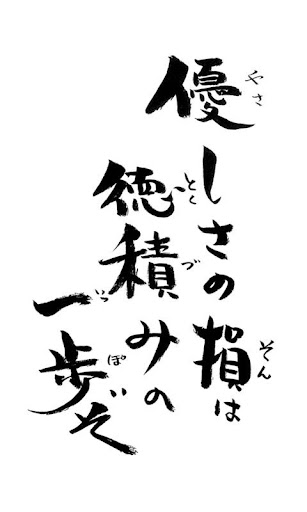 優しさの損は
やさ
そん
徳積みの
とく
づ
一歩ぞ
いっ
ぽ